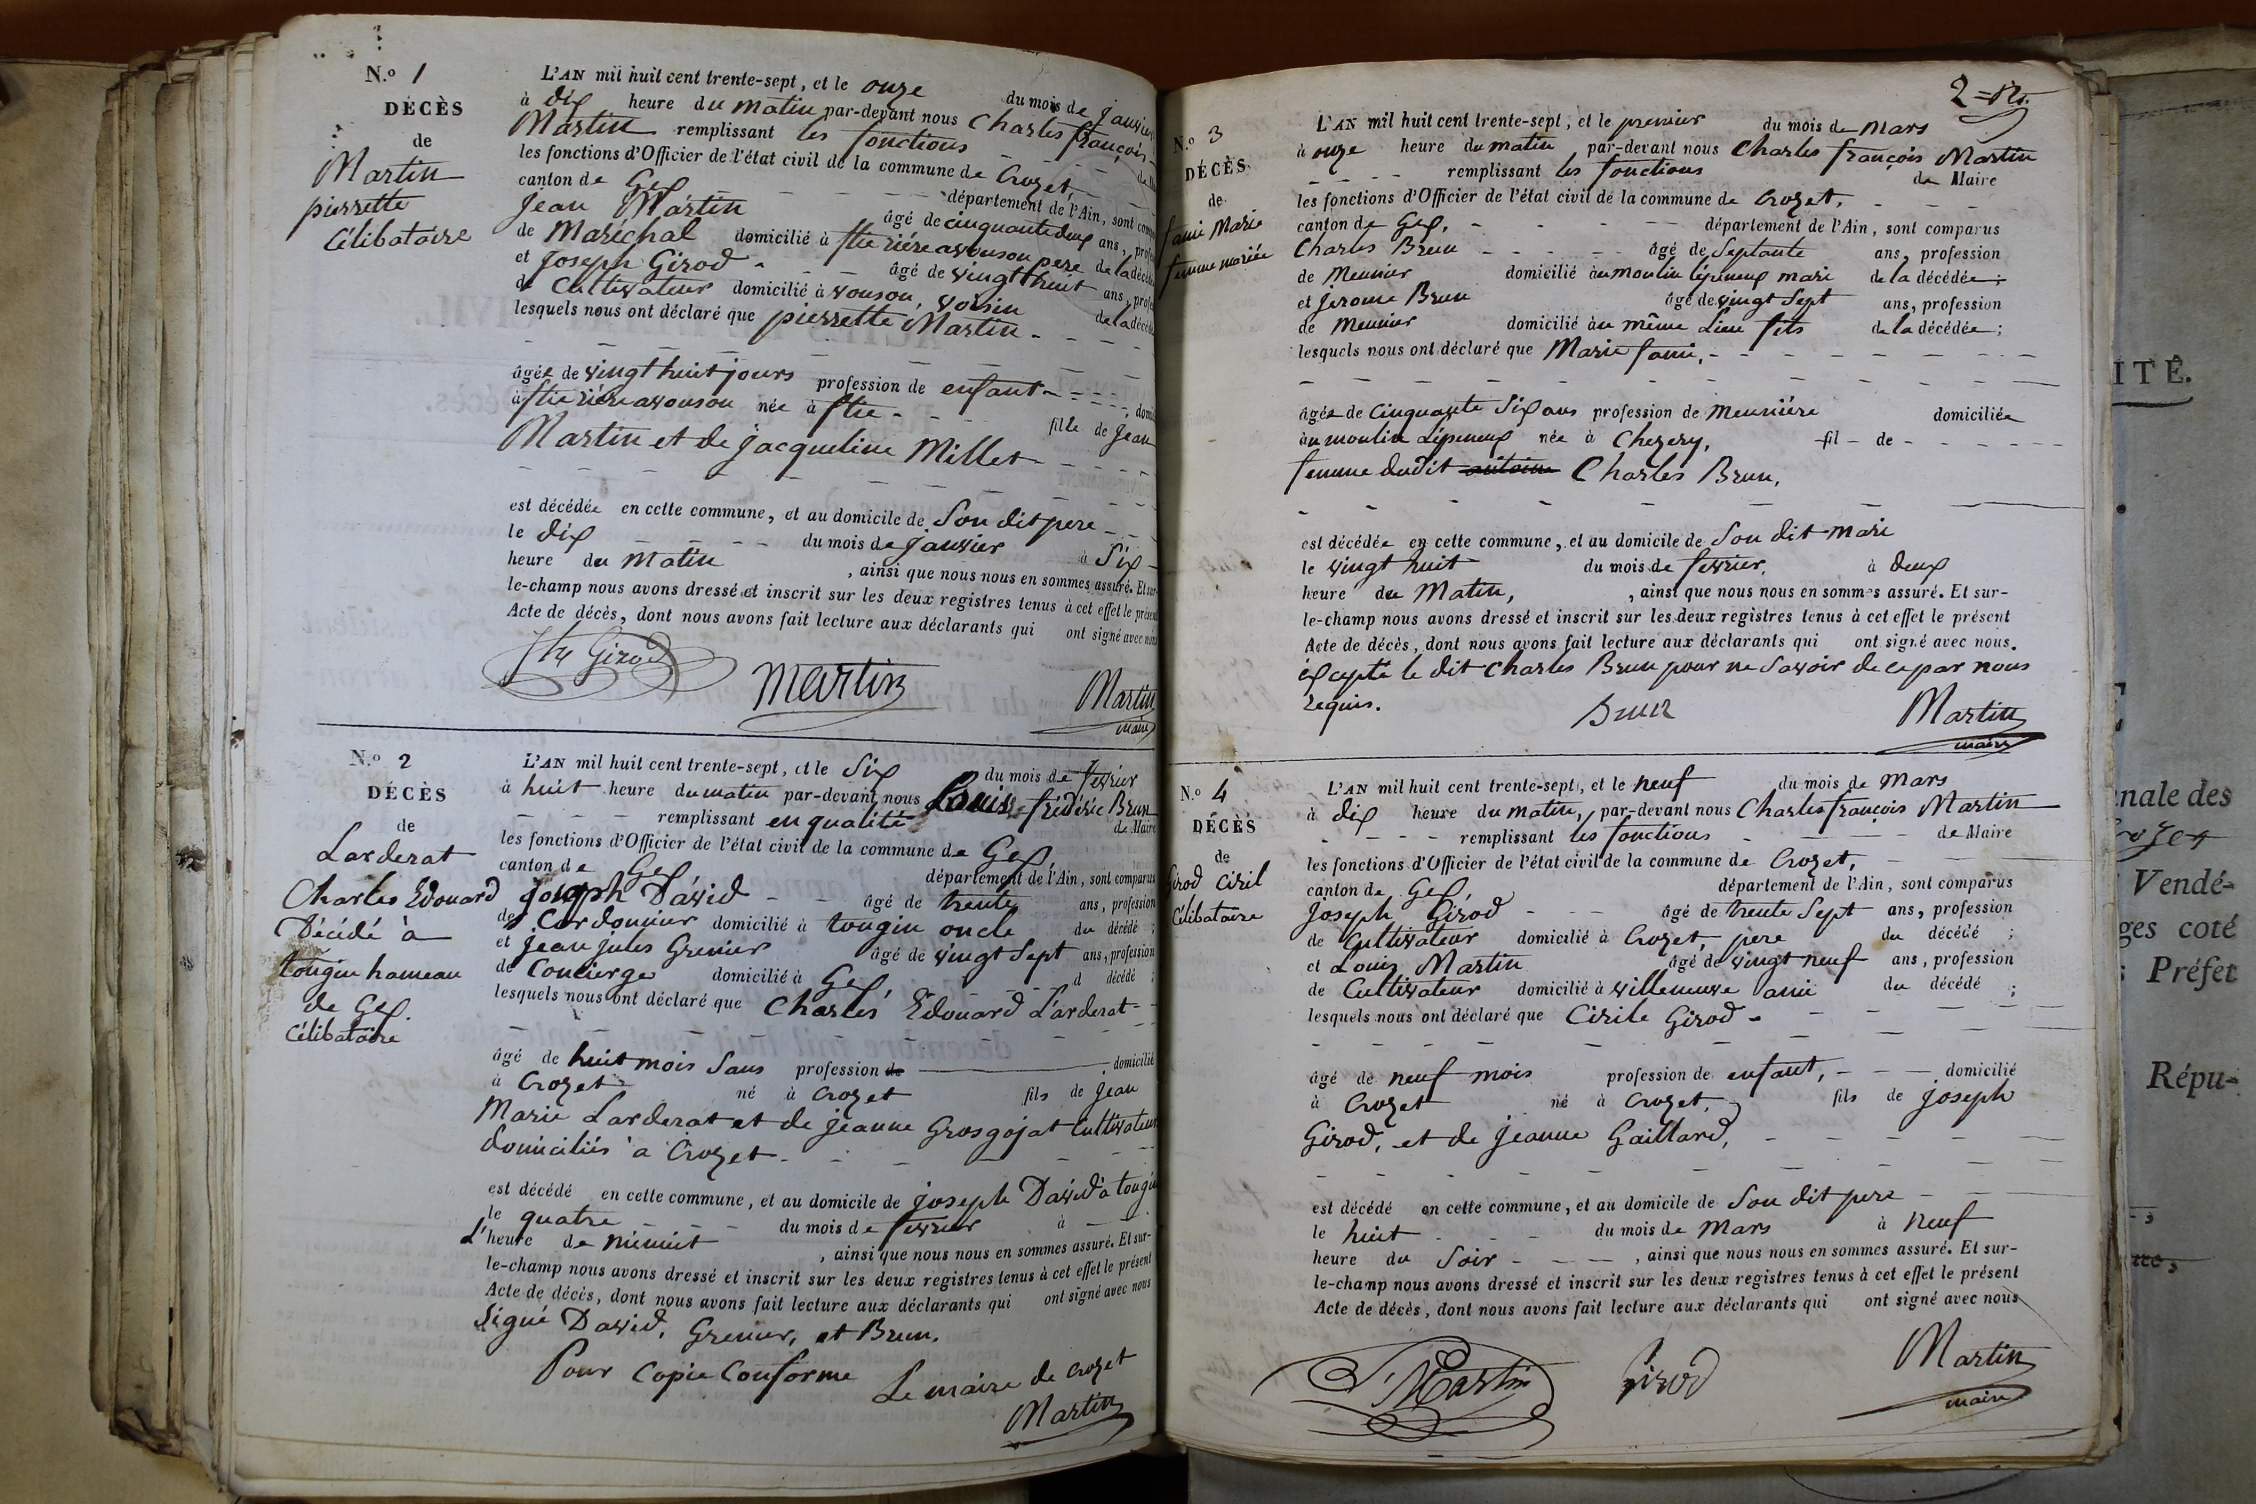 N.º 1
DÉCÈS
de
Martin
pierrette
Célibataire
L'AN mil huit cent trente-sept, et le onze du mois de janvier
à dix heure du matin par-devant nous Charles françois
Martin remplissant les fonctions
les fonctions d'Officier de l'état civil de la commune de Crozet,
canton de Gex département de l'Ain, sont
Jean Martin âgé de cinquante deux ans,
de Maréchal domicilié à avouson pere de la
et Joseph Girod âgé de vingt huit ans,
de Cultivateur domicilié à vouson, voisin de la
lesquels nous ont déclaré que pierrette Martin
âgée de vingt huit jours profession de enfant
à avouson née à fille de Jean
Martin et de jacqueline Millet
est décédée en cette commune, et au domicile de Son dit pere
le dix du mois de janvier à Six
heure du matin, ainsi que nous nous en sommes assuré. Et sur-
le-champ nous avons dressé et inscrit sur les deux registres tenus à cet effet le présent
Acte de décès, dont nous avons fait lecture aux déclarants qui ont signé avec nous
Girod
Martin
Martin
maire
N.º 2
DÉCÈS
de
Larderat
Charles Edouard
Décédé à
tougin hameau
de Gex.
Célibataire
L'AN mil huit cent trente-sept, et le Six du mois de fevrier
à huit heure du matin par-devant nous Louis frédéric Brun
remplissant en qualité de Maire
les fonctions d'Officier de l'état civil de la commune de Gex,
canton de Gex département de l'Ain, sont comparus
joseph David âgé de trente ans, profession
de Cordonnier domicilié à tougin oncle du décédé ;
et jean jules Grenier âgé de vingt Sept ans, profession
de Concierge domicilié à Gex, d décédé ;
lesquels nous ont déclaré que Charles Edouard Larderat
âgé de huit mois Sans profession de domicilié
à Crozet né à Crozet fils de jean
Marie Larderat et de jeanne Grosgojat Cultivateurs
domiciliés à Crozet
est décédé en cette commune, et au domicile de joseph David à tougin
le quatre du mois de fevrier à
L'heure de minuit, ainsi que nous nous en sommes assuré. Et sur-
le-champ nous avons dressé et inscrit sur les deux registres tenus à cet effet le présent
Acte de décès, dont nous avons fait lecture aux déclarants qui ont signé avec nous
Signé David, Grenier, et Brun.
Pour Copie Conforme
Le maire de Crozet
Martin
2
N.º 3
DÉCÈS
de
famé Marie
femme mariée
L'AN mil huit cent trente-sept, et le premier du mois de Mars
à onze heure du matin par-devant nous Charles françois Martin
remplissant les fonctions de Maire
les fonctions d'Officier de l'état civil de la commune de Crozet,
canton de Gex, département de l'Ain, sont comparus
Charles Brun âgé de Septante ans, profession
de Meunier domicilié au moulin Lépeneux mari de la décédée ;
et jerome Brun âgé de vingt Sept ans, profession
de Meunier domicilié au même Lieu fils de la décédée ;
lesquels nous ont déclaré que Marie famé,
âgée de Cinquante Six ans profession de Meunière domiciliée
au moulin Lépeneux née à Chezery, fil de
femme dudit antoine Charles Brun,
est décédée en cette commune, et au domicile de Son dit mari
le vingt huit du mois de fevrier, à deux
heure du Matin, ainsi que nous nous en sommes assuré. Et sur-
le-champ nous avons dressé et inscrit sur les deux registres tenus à cet effet le présent
Acte de décès, dont nous avons fait lecture aux déclarants qui ont signé avec nous.
excepté le dit Charles Brun pour ne Savoir de ce par nous
requis.
Brun
Martin
maire
N.º 4
DÉCÈS
de
Girod Ciril
Célibataire
L'AN mil huit cent trente-sept, et le neuf du mois de Mars
à dix heure du matin, par-devant nous Charles françois Martin
remplissant les fonctions de Maire
les fonctions d'Officier de l'état civil de la commune de Crozet,
canton de Gex, département de l'Ain, sont comparus
joseph Girod âgé de trente Sept ans, profession
de Cultivateur domicilié à Crozet, pere du décédé ;
et Louis Martin âgé de vingt neuf ans, profession
de Cultivateur domicilié à villeneuve ami du décédé ;
lesquels nous ont déclaré que Cirile Girod
âgé de neuf mois profession de enfant, domicilié
à Crozet né à Crozet, fils de joseph
Girod, et de jeanne Gaillard,
est décédé en cette commune, et au domicile de Son dit pere
le huit du mois de Mars à Neuf
heure du Soir, ainsi que nous nous en sommes assuré. Et sur-
le-champ nous avons dressé et inscrit sur les deux registres tenus à cet effet le présent
Acte de décès, dont nous avons fait lecture aux déclarants qui ont signé avec nous
Martin
Girod
Martin
maire
ITÉ.
nale des
Vendé-
ges coté
Préfet
Répu-